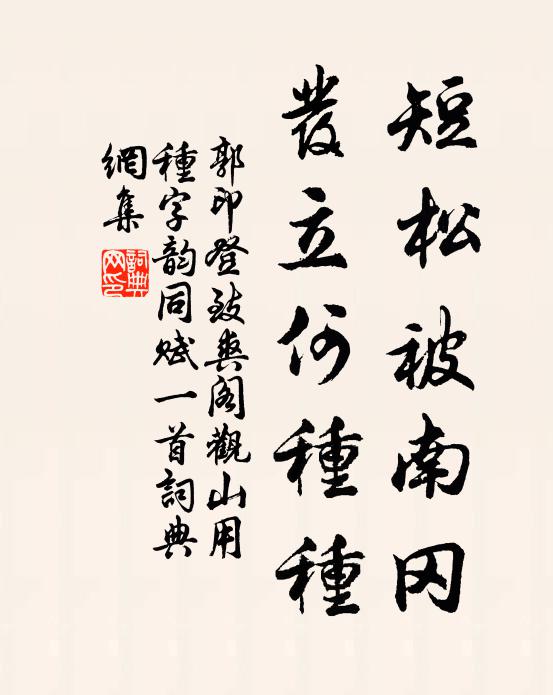 短松被南冈
发立何種種
郭印登致爽阁觀山用
種字韵同赋一首詞典
網集
詞典網印